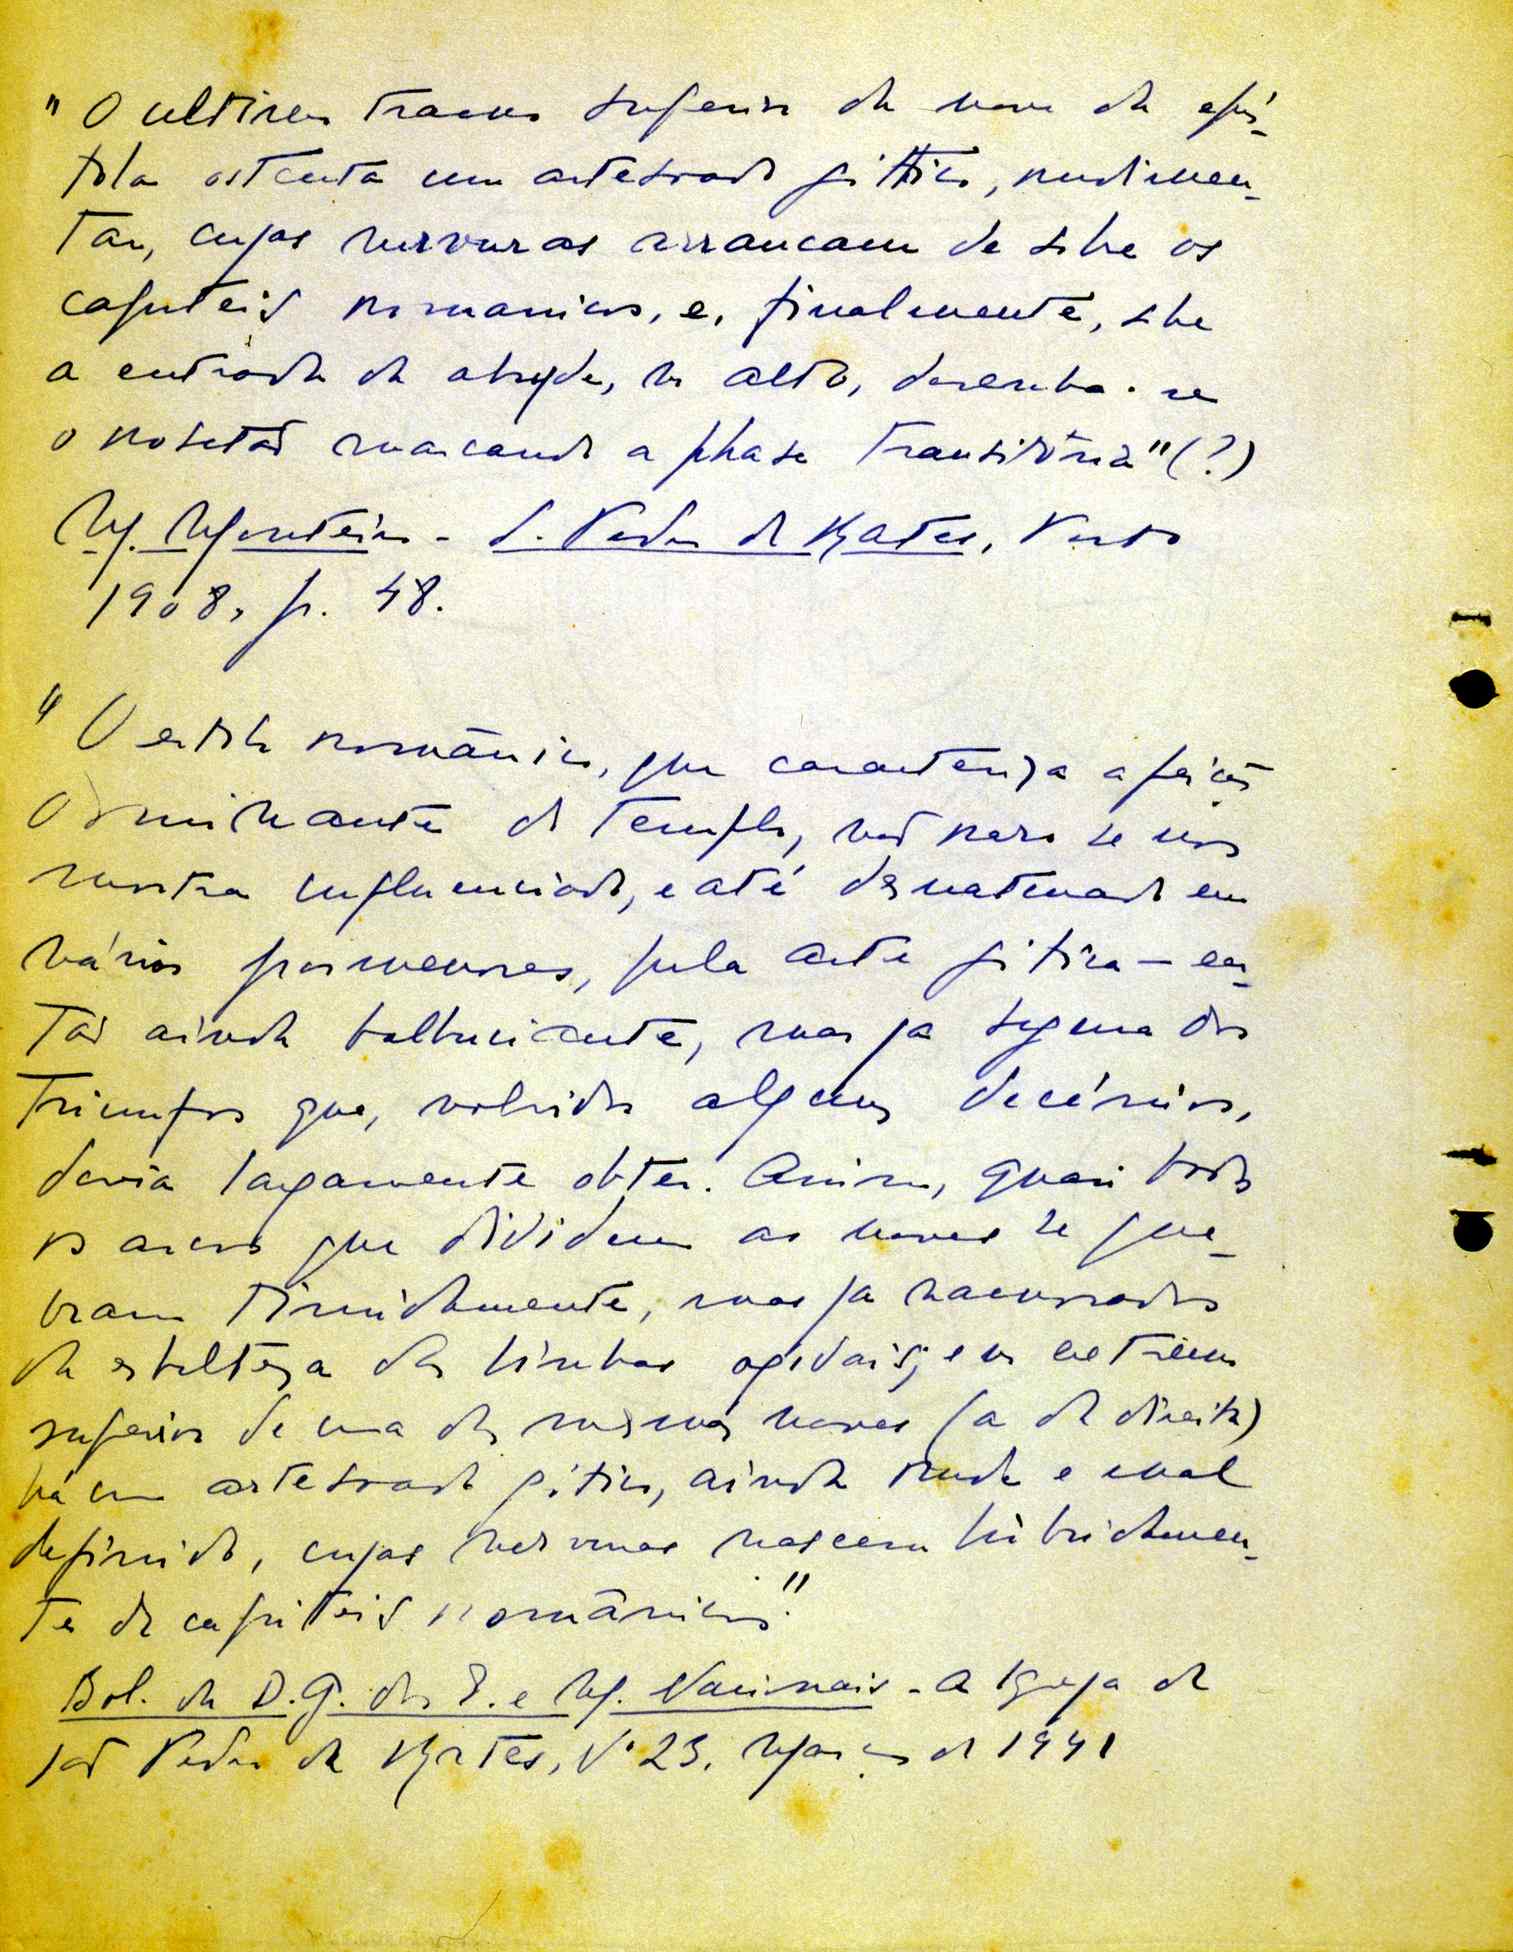 "O ultimo tramo superior da nave da epís-
tola ostenta um artesoado gothico, rudimen-
tar, cujas nervuras arrancam de sobre os
capiteis romanicos, e, finalmente, sobre
a entrada da abside, no alto, desenha-se
o rosetão marcando a phase transitória" (?)
M. Monteiro - S. Pedro de Rates, Porto
1908, p. 48.
"O estilo românico, que caracteriza a feição
dominante do templo, não raro se nos
mostra influenciado, e até desnaturado em
vários pormenores, pela arte gótica — en-
tão ainda balbuciante, mas já segura dos
triunfos que, volvidos alguns decénios,
devia largamente obter. Assim, quasi todos
os arcos que dividem as naves se que-
bram timidamente, mas já namorados
da esbelteza das linhas ogivais; e no extremo
superior de uma das mesmas naves (a da direita)
há um artesoado gótico, ainda rude e mal
definido, cujas nervuras nascem hibridamen-
te de capiteis românicos."
Bol. da D. G. dos E. e M. Nacionais - A Igreja de
São Pedro de Rates, Nº 23, Março de 1941